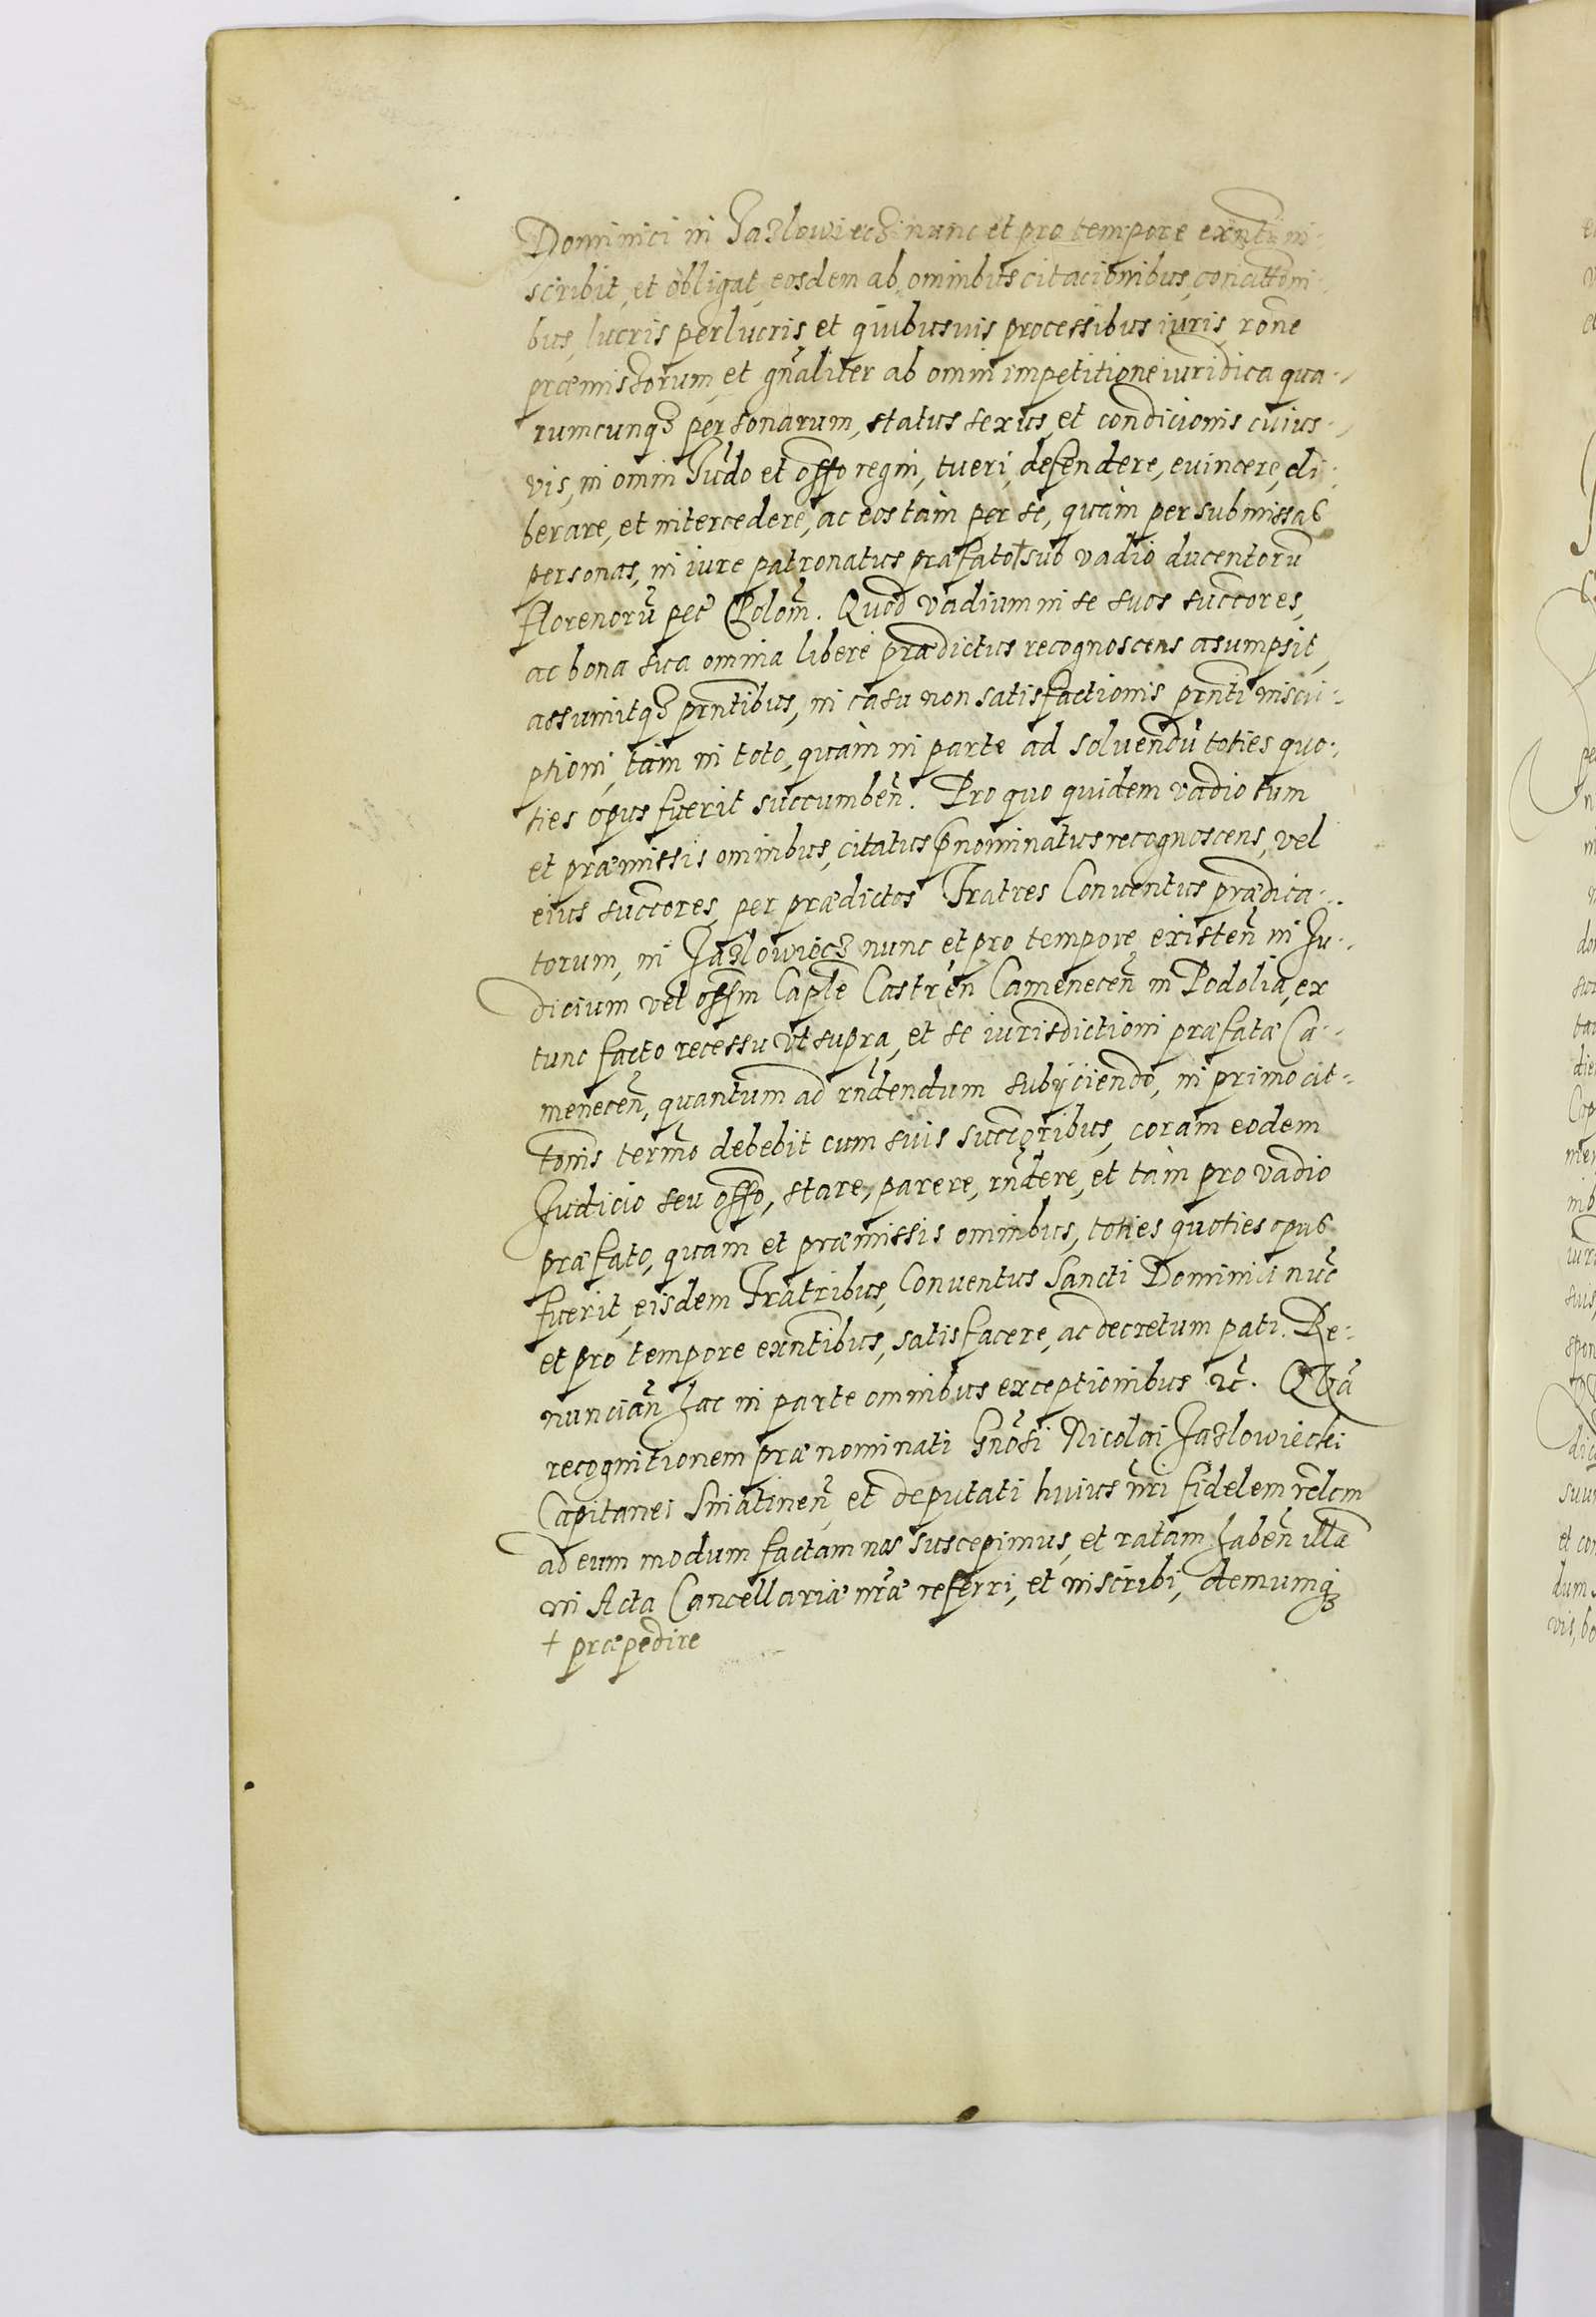 Dominici in Jazlowiecz nunc et pro tempore exnti in-
scribit, et obligat, eosdem ab omnibus citacionibus, concittoni-
bus, lucris perlucris, et quibusuis processibus iuris, rone
præmissorum, et gnaliter ab omni impetitione iuridica qua-
rumcunqz personarum, status sexus, et condicionis cuius-
vis, in omni Judo et offo regni, tueri, defendere, euincere, eli-
berare, et intercedere, ac eos tàm per se, quàm per submissas
personas, in iure patronatus præfato † sub vadio ducentorũ
florenorũ pec Polom. Quod vadium in se suos succores,
ac bona sua omnia liberè prædictus recognoscens asumpsit,
assumitqz prntibus, in casu non satisfactionis prnti inscri-
ptioni, tàm in toto, quàm in parte ad soluendũ toties quo-
ties opus fuerit succumben. Pro quo quidem vadio tum
et præmissis omnibus, citatus pnominatus recognoscens, vel
eius succores, per prædictos Fratres Conuentus prædica-
torum, in Jazlowiecz nunc et pro tempore existen in Ju-
dicium vel offm Caple Castren Camenecen in Podolia, ex
tunc facto recessu vt supra, et se iurisdictioni præfatæ Ca-
menecen, quantum ad rndendum subijciendo, in primo cit-
tonis termo debebit cum suis succoribus, coram eodem
Judicio seu offo, stare, parere, rndere, et tàm pro vadio
præfato, quam et præmissis omnibus, toties quoties opus
fuerit, eisdem Fratribus, Conuentus Sancti Dominici nuc
et pro tempore exntibus, satisfacere, ac decretum pati. Re-
nuncian hac in parte omnibus exceptionibus etc.
recognitionem prænominati Gnosi Nicolai Jazlowiecki
Capitanei Sniatinen, et deputati huius nri fidelem relcm
ad eum modum factam nos suscepimus, et ratam haben illã
in Acta Cancellariæ nræ referri, et inscribi, demumqz
† præpedire